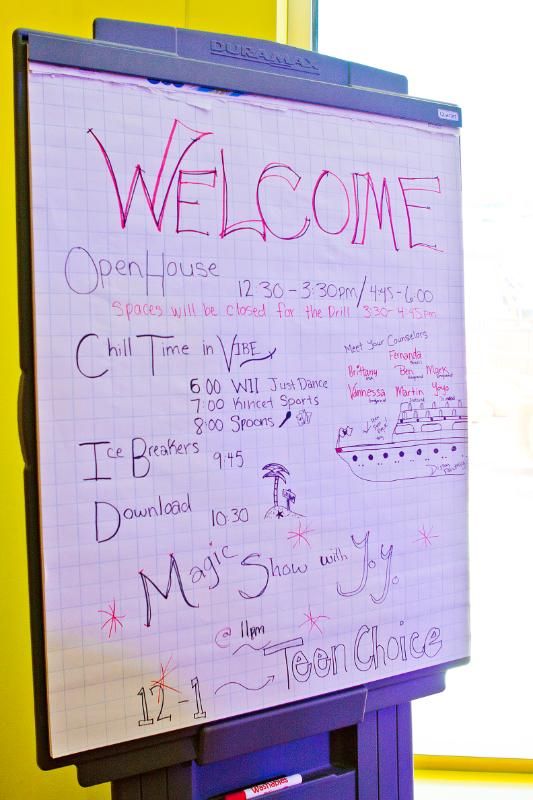 DURAMAX
WELCOME
Open House 12:30 - 3:30pm/4:45-6:00
Spaces will be closed for the Drill 3:30-4:45pm
Chill Time in VIBE
6:00 WII Just Dance
7:00 Kincet Sports
8:00 Spoons
Meet Your Counselors
Fernanda
Brittany Ben Mark
Vannessa Martin Yoyo
Ice Breakers 9:45
Download 10:30
Magic Show with J.y.
@ 11pm
12-1 Teen Choice
Washables